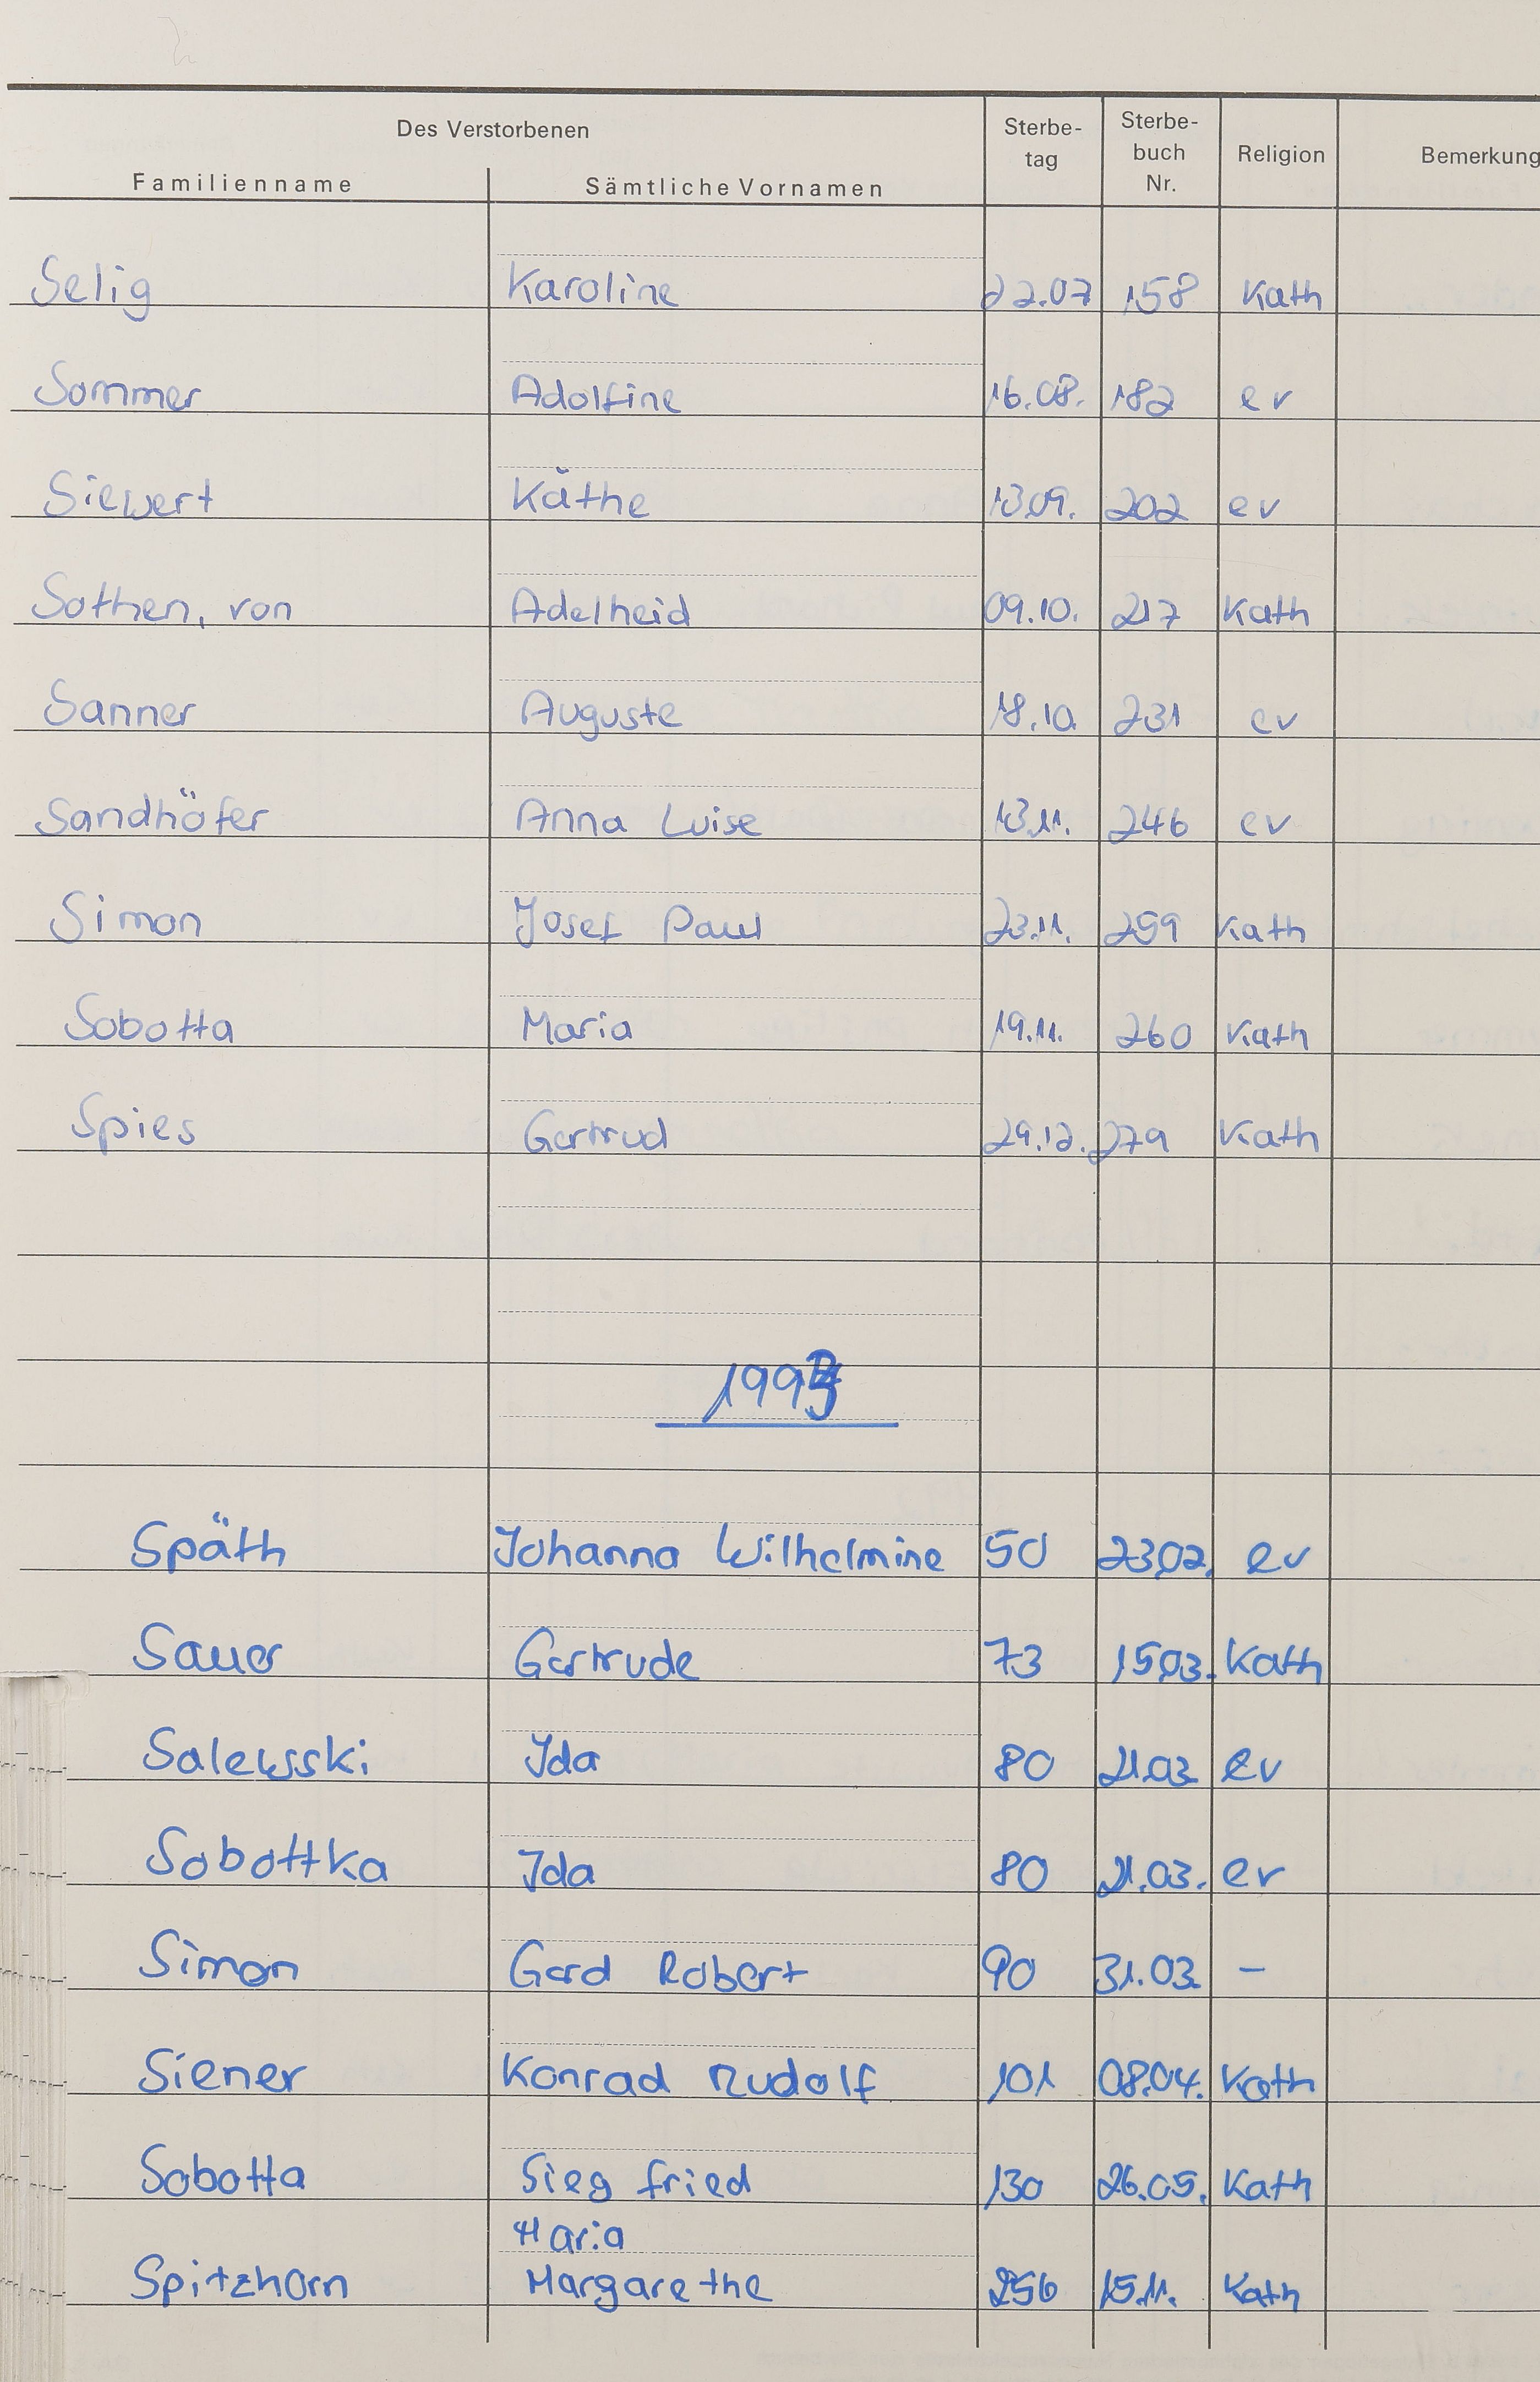 Des Verstorbenen
Familienname Sämtliche Vornamen Sterbe-tag Sterbe-buch Nr. Religion Bemerkung
Selig Karoline 22.07 158 Kath
Sommer Adolfine 16.08. 182 ev
Siewert Käthe 13.09. 202 ev
Sothen, von Adelheid 09.10. 217 Kath
Sanner Auguste 18.10. 231 ev
Sandhöfer Anna Luise 13.11. 246 ev
Simon Josef Paul 23.11. 259 Kath
Sobotta Maria 19.11. 260 Kath
Spies Gertrud 29.12. 279 Kath
Späth Johanna Wilhelmine 50 23.02. ev
Sauer Gertrude 73 15.03. Kath
Salewski Ida 80 21.03. ev
Sobottka Ida 80 21.03. ev
Simon Gerd Robert 90 31.03. –
Siener Konrad Rudolf 101 08.04. Kath
Sobotta Siegfried 130 26.05. Kath
Maria
Spitzhorn Margarethe 256 15.11. Kath